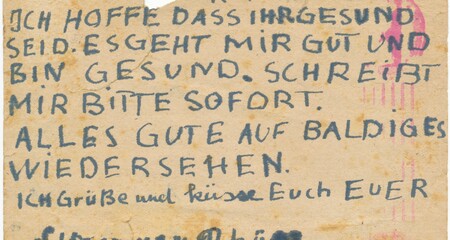 ICH HOFFE DASS IHR GESUND
SEID. ES GEHT MIR GUT UND
BIN GESUND. SCHREIBT
MIR BITTE SOFORT.
ALLES GUTE AUF BALDIGES
WIEDERSEHEN.
ICH GRÜßE und küsse EUCH EUER